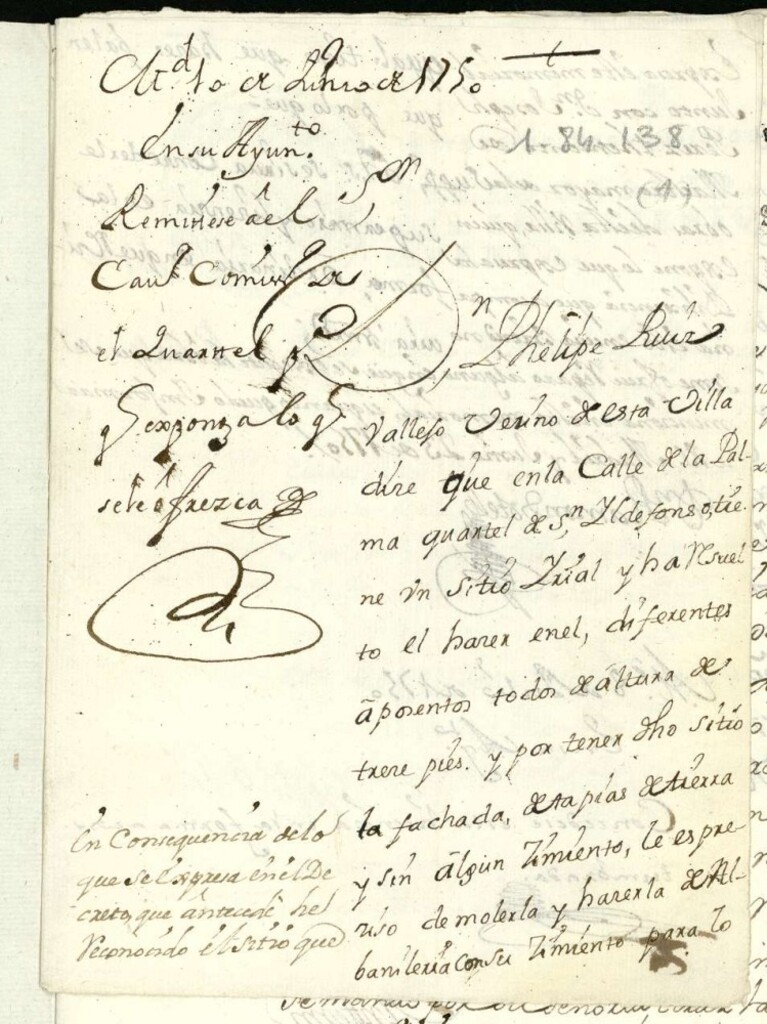 Md 10 de Junio de 1750
En su Ayunto.
Remitese a el Sor
Cavro Comisro de
el Quartel pa
qe exponga lo qe
se le ofrezca
1-84-138
(1)
Dn Phelipe Ruiz
Vallejo Vezino de esta Villa
dize que en la Calle de la Pal-
ma quartel de Sn Yldefonso, tie-
ne Vn sitio Yrial y ha Resuel
to el hazer en el, diferentes
aposentos todos de altura de
treze pies. y por tener dho sitio
la fachada, de tapias de tierra
y sin algun Zimiento, le es pre-
ziso demolerla y hazerla de Al-
bañileria con su Zimiento para lo
En Consequencia de lo
que se Expresa en el De
creto, que antecede he
Reconocido el sitio que